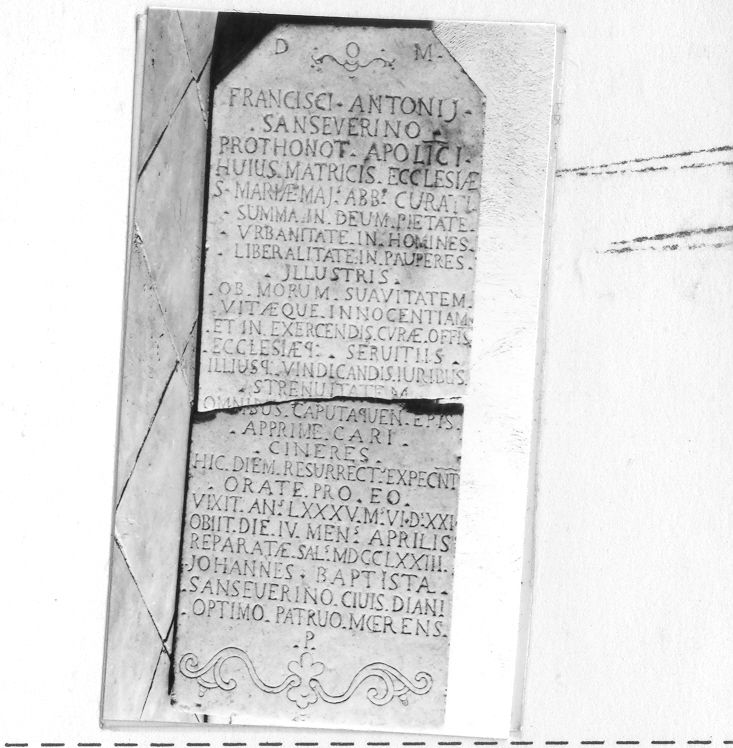 D O M.
FRANCISCI. ANTONIJ.
. SANSEVERINO .
PROTHONOT. APOLICI.
HUIUS. MATRICIS. ECCLESIÆ
S. MARIÆ MAJ. ABB. CURATI.
. SUMMA. IN. DEUM. PIETATE.
. VRBANITATE. IN. HOMINES.
. LIBERALITATE. IN. PAUPERES.
. JLLUSTRIS .
. OB. MORUM. SUAVITATEM.
. VITÆQUE. INNOCENTIAM.
. ET IN EXERCENDIS. CVRÆ. OFFIS.
. ECCLESIÆꟼ: . SERUITIIS .
ILLIUSꟼ. VINDICANDIS. IURIBUS.
. STRENUITATEM
OMNIBUS. CAPUTAQUEN. EPIS.
. APPRIME. CARI .
. CINERES .
HIC. DIEM. RESURRECT. EXPECNT
. ORATE. PRO. EO .
VIXIT. AN. LXXXV. M. VI. D. XXI.
OBIIT. DIE. IV. MEN. APRILIS
REPARATÆ. SAL. MDCCLXXIII.
. JOHANNES . BAPTISTA .
. SANSEUERINO. CIUIS. DIANI
. OPTIMO. PATRUO. MŒRENS.
. P .